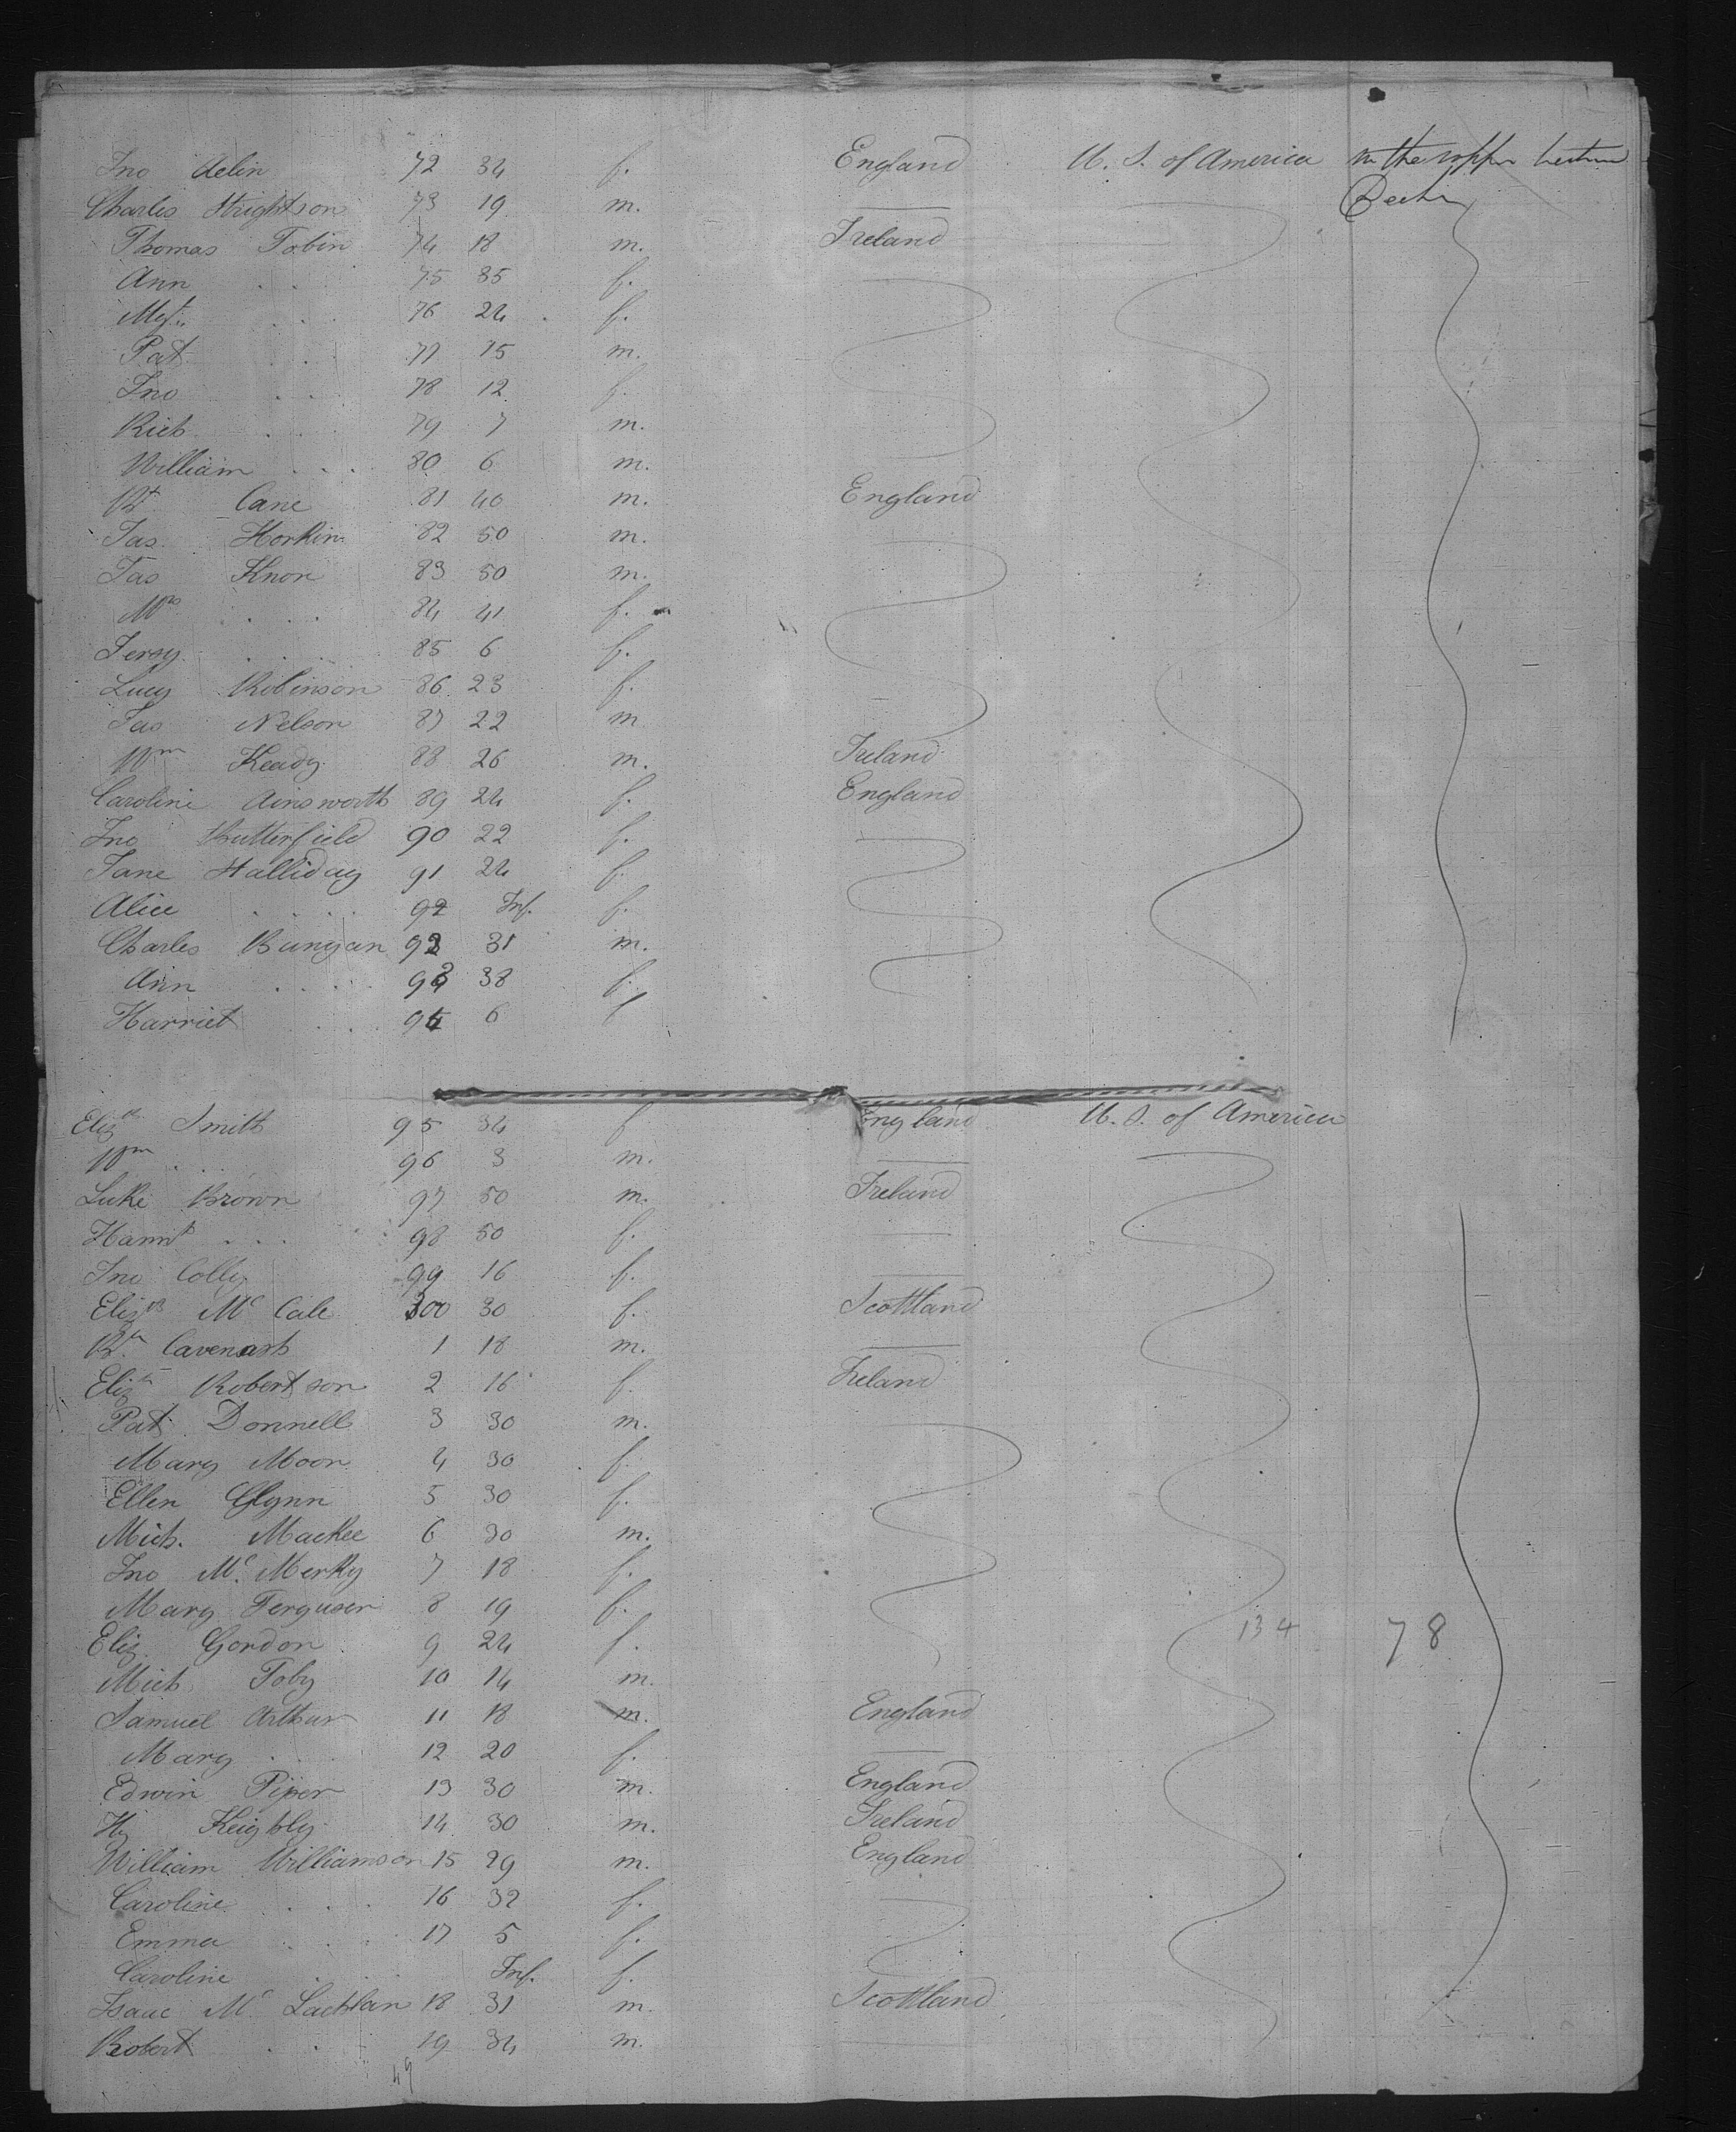 Jno Aelin 72 34 f. England U. S. of America in the upper between
Charles Hrightson 73 19 m. Decks
Thomas Tobin 74 18 m. Ireland
Ann . . 75 35 f.
Mgt . . . 76 24 f.
Pat . . 77 15 m.
Jno . . . 78 12 f.
Rich . . . 79 7 m.
William . . . 80 6 m.
Rt Cane 81 40 m. England
Jas. Horkin 82 50 m.
Jas Knon 83 50 m.
Mrs . . . . 84 41 f.
Jersy . . . . 85 6 f.
Lucy Robinson 86 23 f.
Jas Nelson 87 22 m
Wm Keady 88 26 m. Ireland
Caroline Ainsworth 89 24 f. England
Jno Butterfield 90 22 f.
Jane Halliday 91 24 f.
Alice . . . . 92 Inf. f.
Charles Bunyan 93 31 m.
Ann . . . . 94 38 f.
Harriet . . . 95 6 f
Elizth Smith 95 34 f England U. S. of America
Wm . . . 96 3 m.
Luke Brown 97 50 m. Ireland
Hannt . . . 98 50 f.
Jno Colly 99 16 f.
Elizth Mc Cale 300 30 f. Scottland
Rt. Cavenash 1 18 m.
Elizth Robertson 2 16 f. Ireland
Pat. Donnell 3 30 m.
Mary Moon 4 30 f.
Ellen Glynn 5 30 f.
Mich. Mackee 6 30 m.
Jno Mc Merky 7 18 f.
Mary Ferguson 8 19 f.
Eliz. Gordon 9 24 f. 134 78
Mich Toby 10 14 m.
Samuel Arthur 11 18 m. England
Mary . . . 12 20 f.
Edwin Piper 13 30 m. England
Hy Keighly 14 30 m. Ireland
William Williamson 15 29 m. England
Caroline . . . . 16 32 f.
Emma . . . 17 5 f.
Caroline . . Inf. f.
Isaac Mc Lachlan 18 31 m. Scottland
Robert . . . 19 34 m.
49